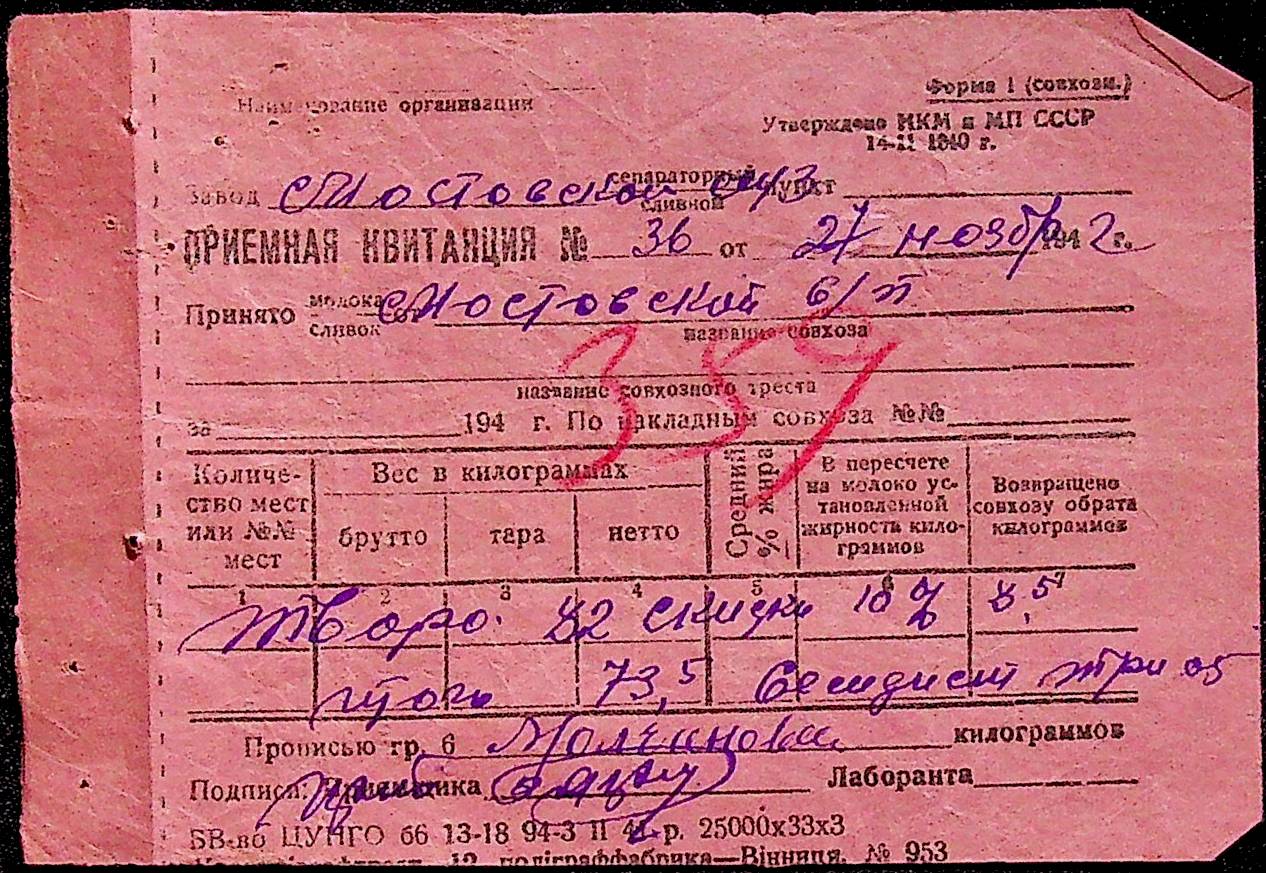 Форма 1 (совхозн.)
Наименование организации
Утверждено НКМ и МП СССР
14-II 1940 г.
Завод Мостовской сепараторный сливной пункт
ПРИЕМНАЯ КВИТАНЦИЯ № 36 от 27 ноября 1942 г.
Принято молока сливок Мостовской в/п
название совхоза
359
название совхозного треста
за 194 г. По накладным совхоза №№
Количе- Вес в килограммах Средний % жира В пересчете
ство мест на молоко ус- Возвращено
или №№ брутто тара нетто тановленной совхозу обрата
мест жирности кило- килограммов
граммов
1 2 3 4 5 6 7
Творо. 82 скидки 10% 8,5
итого 73,5 семидесят три 05
Прописью гр. 6 Молчанова килограммов
Подписи: Приемщика Лаборанта
БВ-во ЦУНГО 66 13-18 94-3 II 41 р. 25000х33х3
12 поліграффабрика—Вінниця. № 953